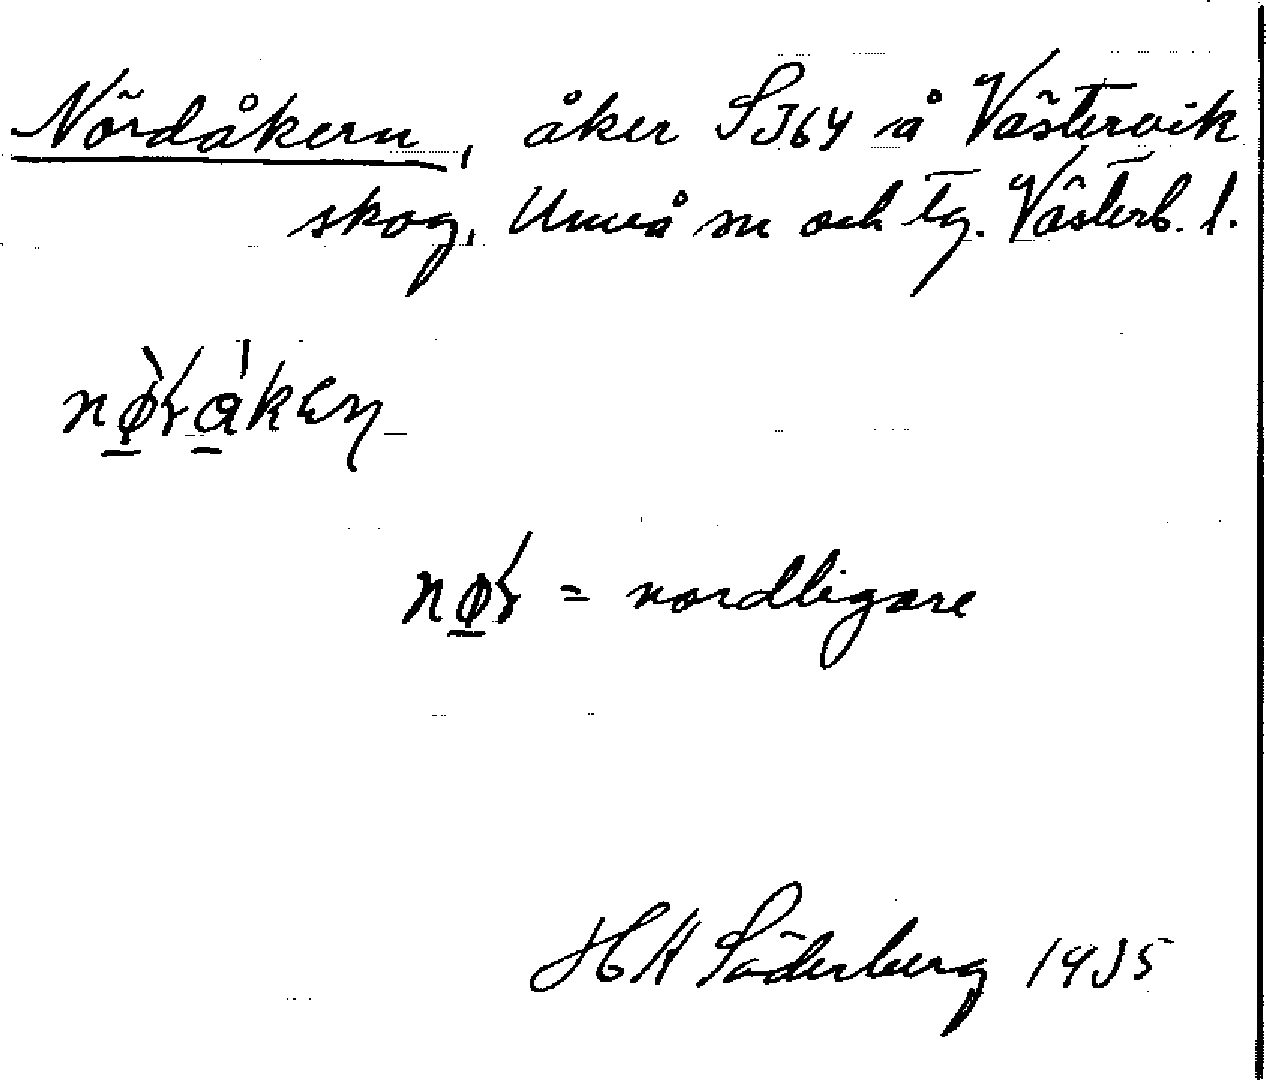 Nördåkern, åker SJ64 å Västervik
skog, Umeå sn och tg. Västerb. l.
= nordligare
H H Söderberg 1935